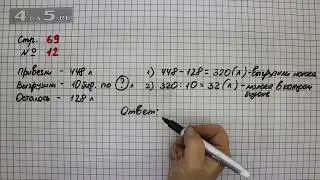 4 DA 5. RU
Стр. 69
№ 12
Привезли - 448 л
Выгрузили - 10 бид. по ? л
Осталось - 128 л
1) 448 - 128 = 320 (л) - выгрузили молока
2) 320 : 10 = 32 (л) - молока в каждом бидоне
Ответ: